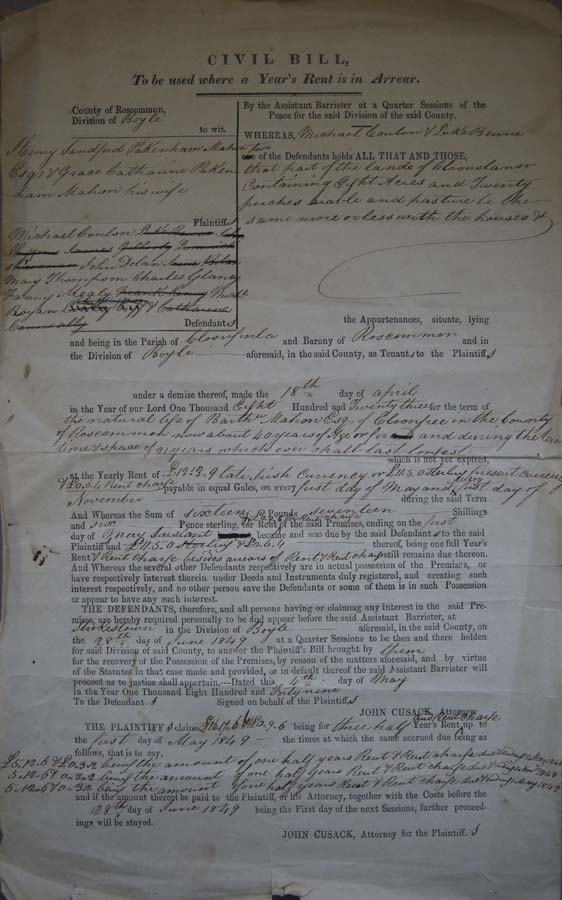 CIVIL BILL,
To be used where a Year's Rent is in Arrear.
County of Roscommon,
Division of Boyle
to wit.
Henry Sandford Pakenham Mahon
Esqr & Grace Catharine Paken
ham Mahon his wife
Plaintiffs
Michael Conlon Luke Beirne
John Dolan
Mary Thompson Charles Glancy
Fanny Megly
Bogan & Catharine
Connolly
Defendants
By the Assistant Barrister at a Quarter Sessions of the
Peace for the said Division of the said County.
WHEREAS, Michael Conlon & Luke Beirne
two
one of the Defendants holds ALL THAT AND THOSE,
that part of the lands of Cloonslanor
Containing Eight Acres and Twenty
perches arable and pasture be the
same more or less with the houses &
the Appurtenances, situate, lying
and being in the Parish of Cloonfinla and Barony of Roscommon and in
the Division of Boyle aforesaid, in the said County, as Tenants to the Plaintiffs
under a demise thereof, made the 18th day of April
in the Year of our Lord One Thousand Eight Hundred and Twenty three for the term of
the natural life of Barthw Mahon Esq. of Clonfree in the County
of Roscommon now about 40 years of Age or for and during the
time & space of 21 years which ever shall last longest
which is not yet expired,
at the Yearly Rent of £12.3.9 late Irish Currency or £11.5.0 Sterling present currency
& £0.6.4 Rent charge payable in equal Gales, on every first day of May and every first day of
November during the said Term
And Whereas the Sum of sixteen Pounds seventeen Shillings
and six Pence sterling, for Rent of the said Premises, ending on the first
day of May Instant became and was due by the said Defendants to the said
Plaintiffs and £11.5.0 Sterling & £0.6.4 thereof, being one full Year's
Rent & Rent Charge besides arrears of Rent & Rent charge still remains due thereon.
And Whereas the several other Defendants respectively are in actual possession of the Premises, or
have respectively interest therein under Deeds and Instruments duly registered, and creating such
interest respectively, and no other person save the Defendants or some of them is in such Possession
or appear to have any such interest.
THE DEFENDANTS, therefore, and all persons having or claiming any Interest in the said Pre-
mises, are hereby required personally to be and appear before the said Assistant Barrister, at
Strokestown in the Division of Boyle aforesaid, in the said County, on
the 28th day of June 1849 at a Quarter Sessions to be then and there holden
for said Division of said County, to answer the Plaintiff's Bill brought by them
for the recovery of the Possession of the Premises, by reason of the matters aforesaid, and by virtue
of the Statutes in that case made and provided, or in default thereof the said Assistant Barrister will
proceed as to justice shall appertain.—Dated this 4th day of May
in the Year One Thousand Eight Hundred and Forty nine
To the Defendants Signed on behalf of the Plaintiffs
JOHN CUSACK, Attorney.
THE PLAINTIFFS claim £16.17.6 & £0.9.6 being for three half Year's Rent and Rent Charge up to
the first day of May 1849 the times at which the same accrued due being as
follows, that is to say,
£5.12.6 & £0.3.2 being the amount of one half years Rent & Rent charge due 1st May 1848
5.12.6 & 0.3.2 being the amount of one half years Rent & Rent charge due 1st Novr 1848
5.12.6 & 0.3.2 being the amount of one half years Rent & Rent charge due 1st May 1849
and if the amount thereof be paid to the Plaintiff, or his Attorney, together with the Costs before the
28th day of June 1849 being the First day of the next Sessions, further proceed-
ings will be stayed.
JOHN CUSACK, Attorney for the Plaintiffs